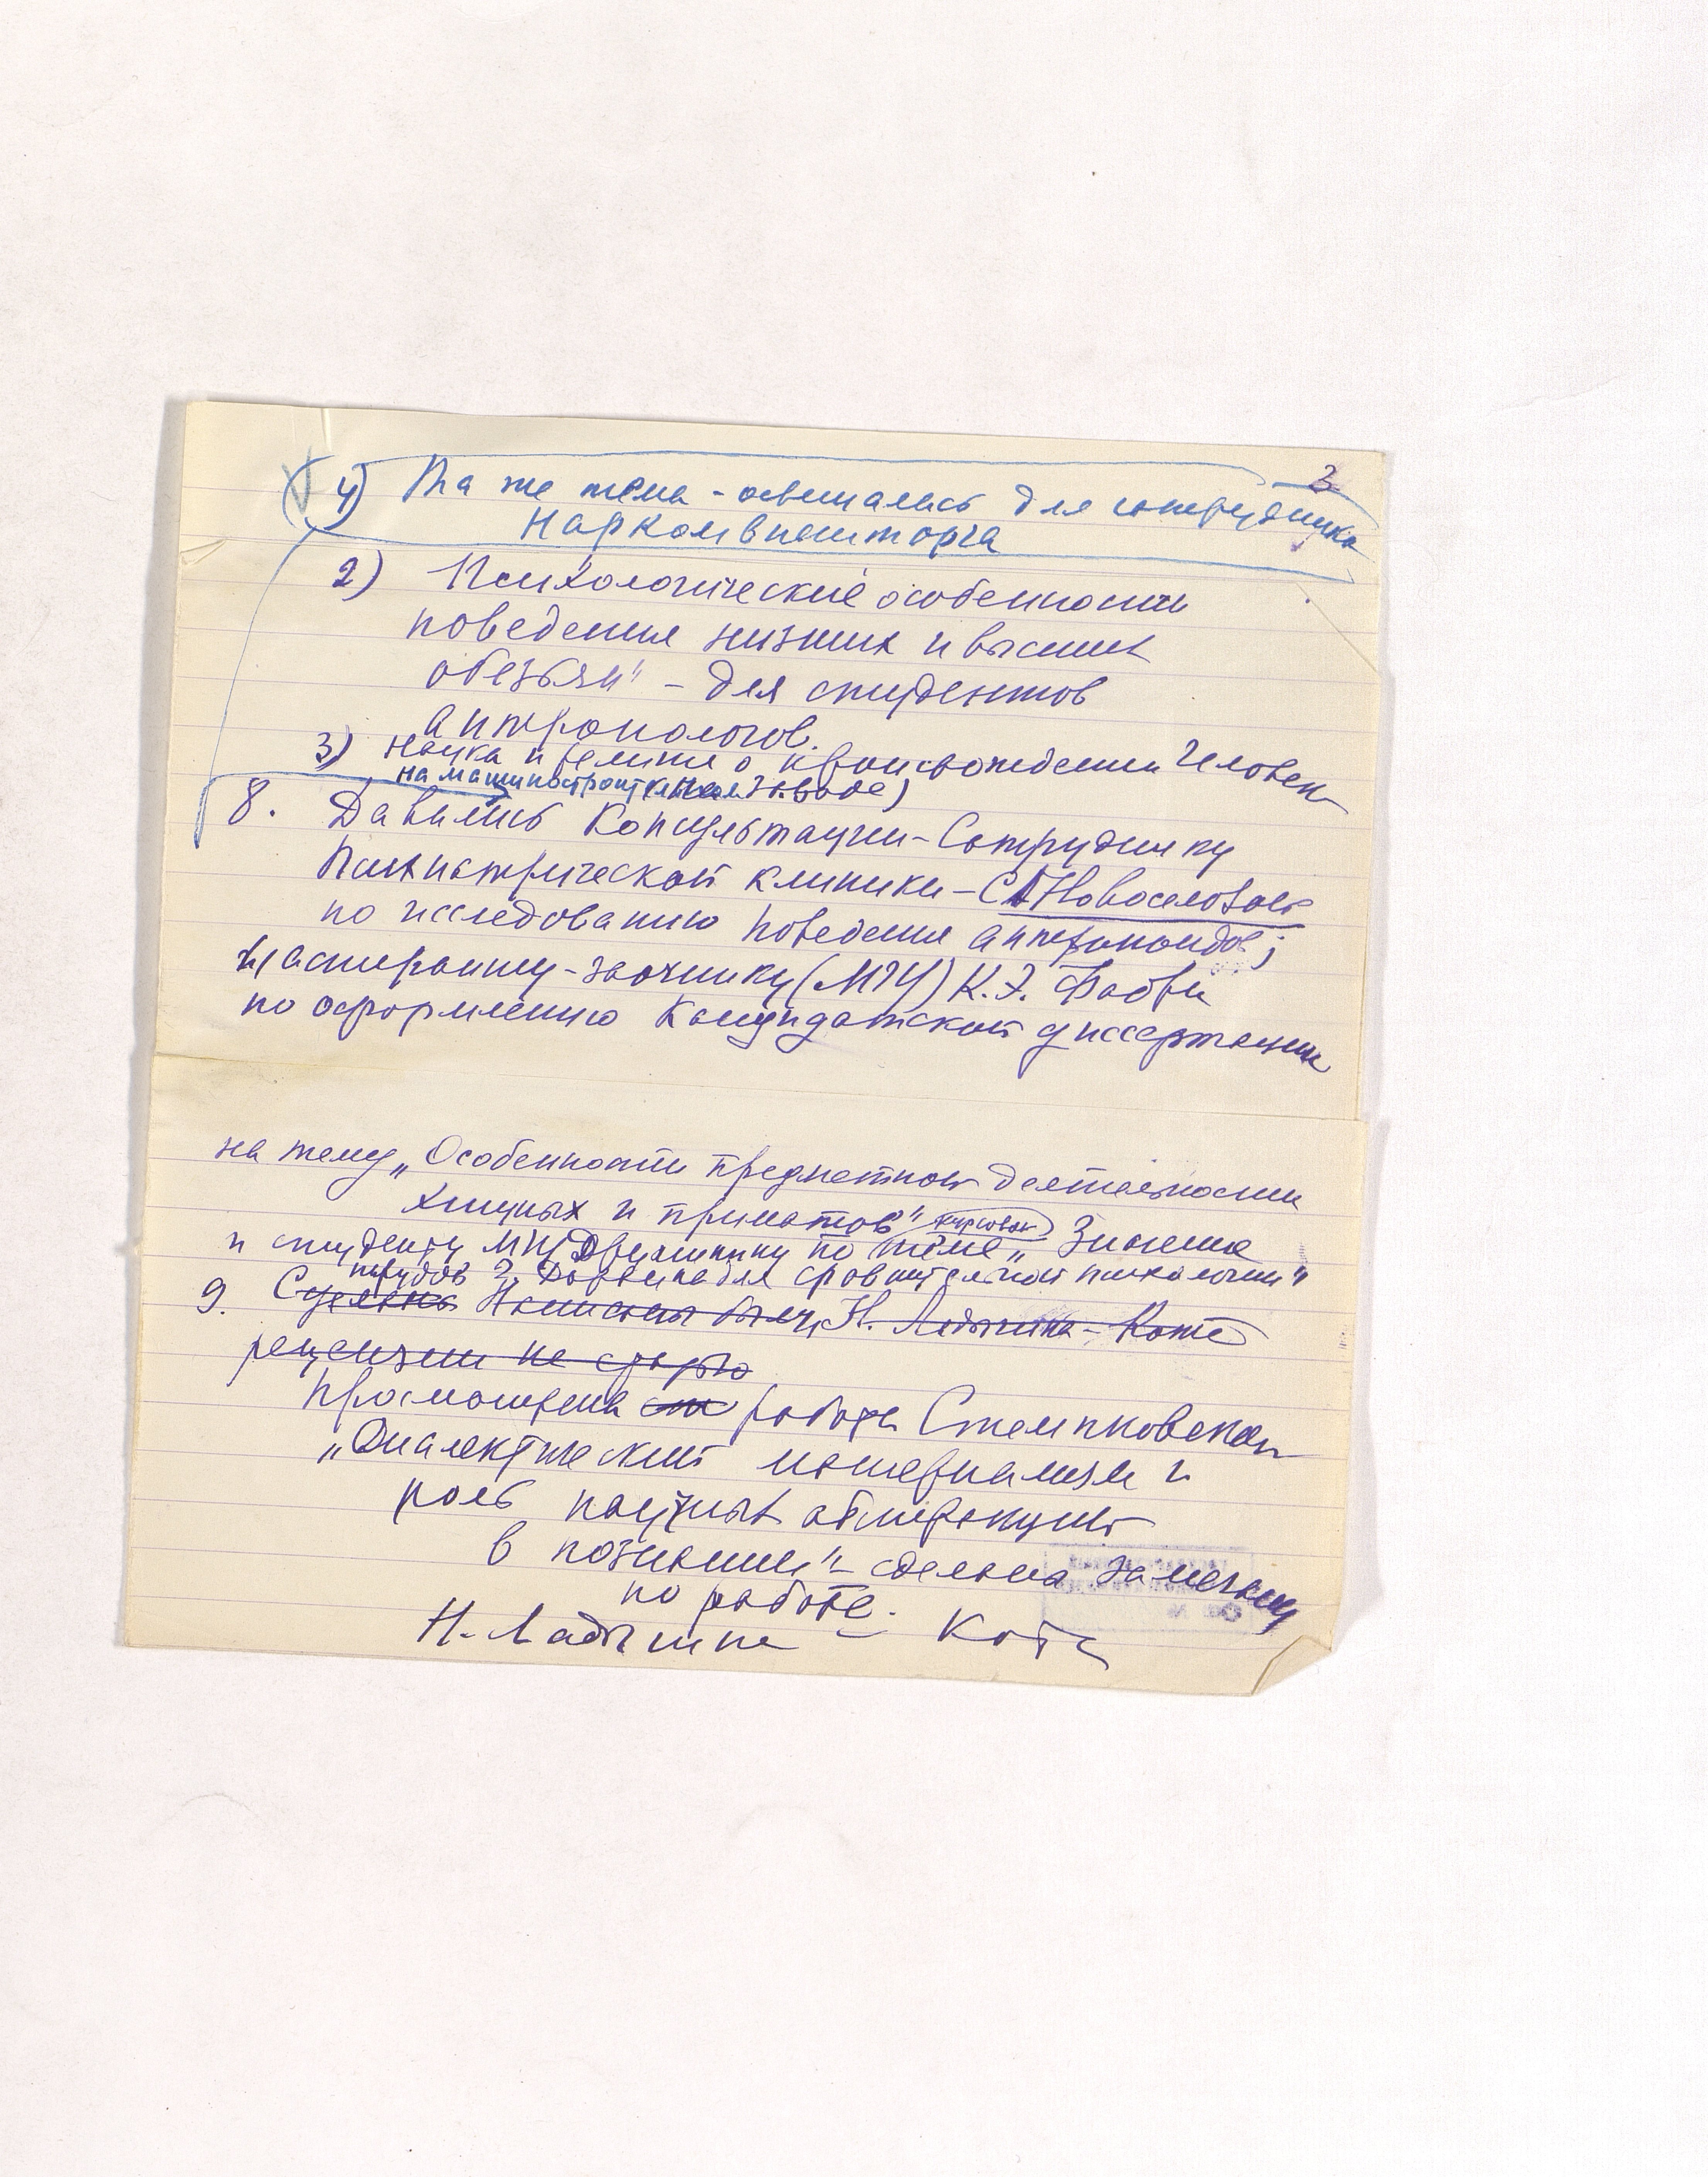 3
4) Та же тема - освещалась для сотрудника
Наркомвнешторга
2) Психологические особенности
поведения низших и высших
обезьян" – для студентов
антропологов.
3) Наука и религия о происхождении человека
на машиностроительном заводе)
8. Давались консультации – Сотруднику
Психиатрической клиники – С Новоселовой
по исследованию поведения антропоидов;
и аспиранту-заочнику (МГУ) К.Э. Фабри
по оформлению кандидатской диссертации
на тему „Особенности предметной деятельности
хищных и приматов"
и студенту МГУ по курсовой теме „Значение
трудов Ч. Дарвина для сравнительной психологии"
9. Сделано Написаны Н. Ладыгина-Котс
рецензии не
Просмотрена работа Стемпковской
„Диалектический материализм и
роль научных абстракций
в познании" – сделаны замечания
по работе.
Н. Ладыгина – Котс